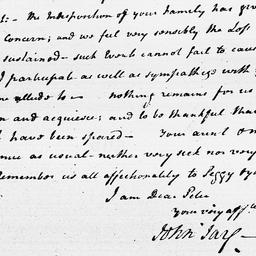 :- the Indisposition of your Family has give
Concern; and we feel very sensibly the Loss
sustained - such Events cannot fail to cause
I participate as well as sympathize with
allude to - nothing remains for us
n and acquiesce; and to be thankful that
have been spared - Your aunt
nce as usual - neither very sick nor very
Remember us all affectionately to Peggy
I am Dear Peter
Your very affte
John Jay -